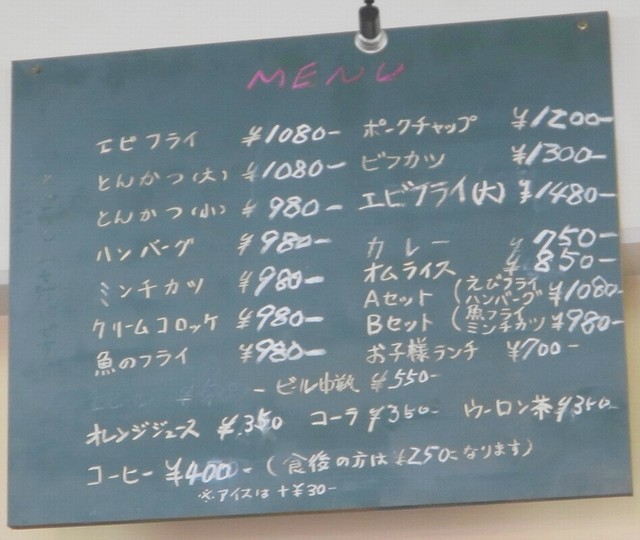 MENU
エビフライ ¥1080-
とんかつ(大) ¥1080-
とんかつ(小) ¥980-
ハンバーグ ¥980-
ミンチカツ ¥980-
クリームコロッケ ¥980-
魚のフライ ¥980-
ポークチャップ ¥1200-
ビフカツ ¥1300-
エビフライ(大) ¥1480-
カレー ¥750-
オムライス ¥850-
Aセット (えびフライ ハンバーグ ¥1080-
Bセット (魚フライ ミンチカツ ¥980-
お子様ランチ ¥700-
-ビル中瓶 ¥550-
オレンジジュース ¥350 コーラ ¥350- ウーロン茶 ¥350-
コーヒー ¥400-(食後の方は¥250になります)
※アイスは+¥30-